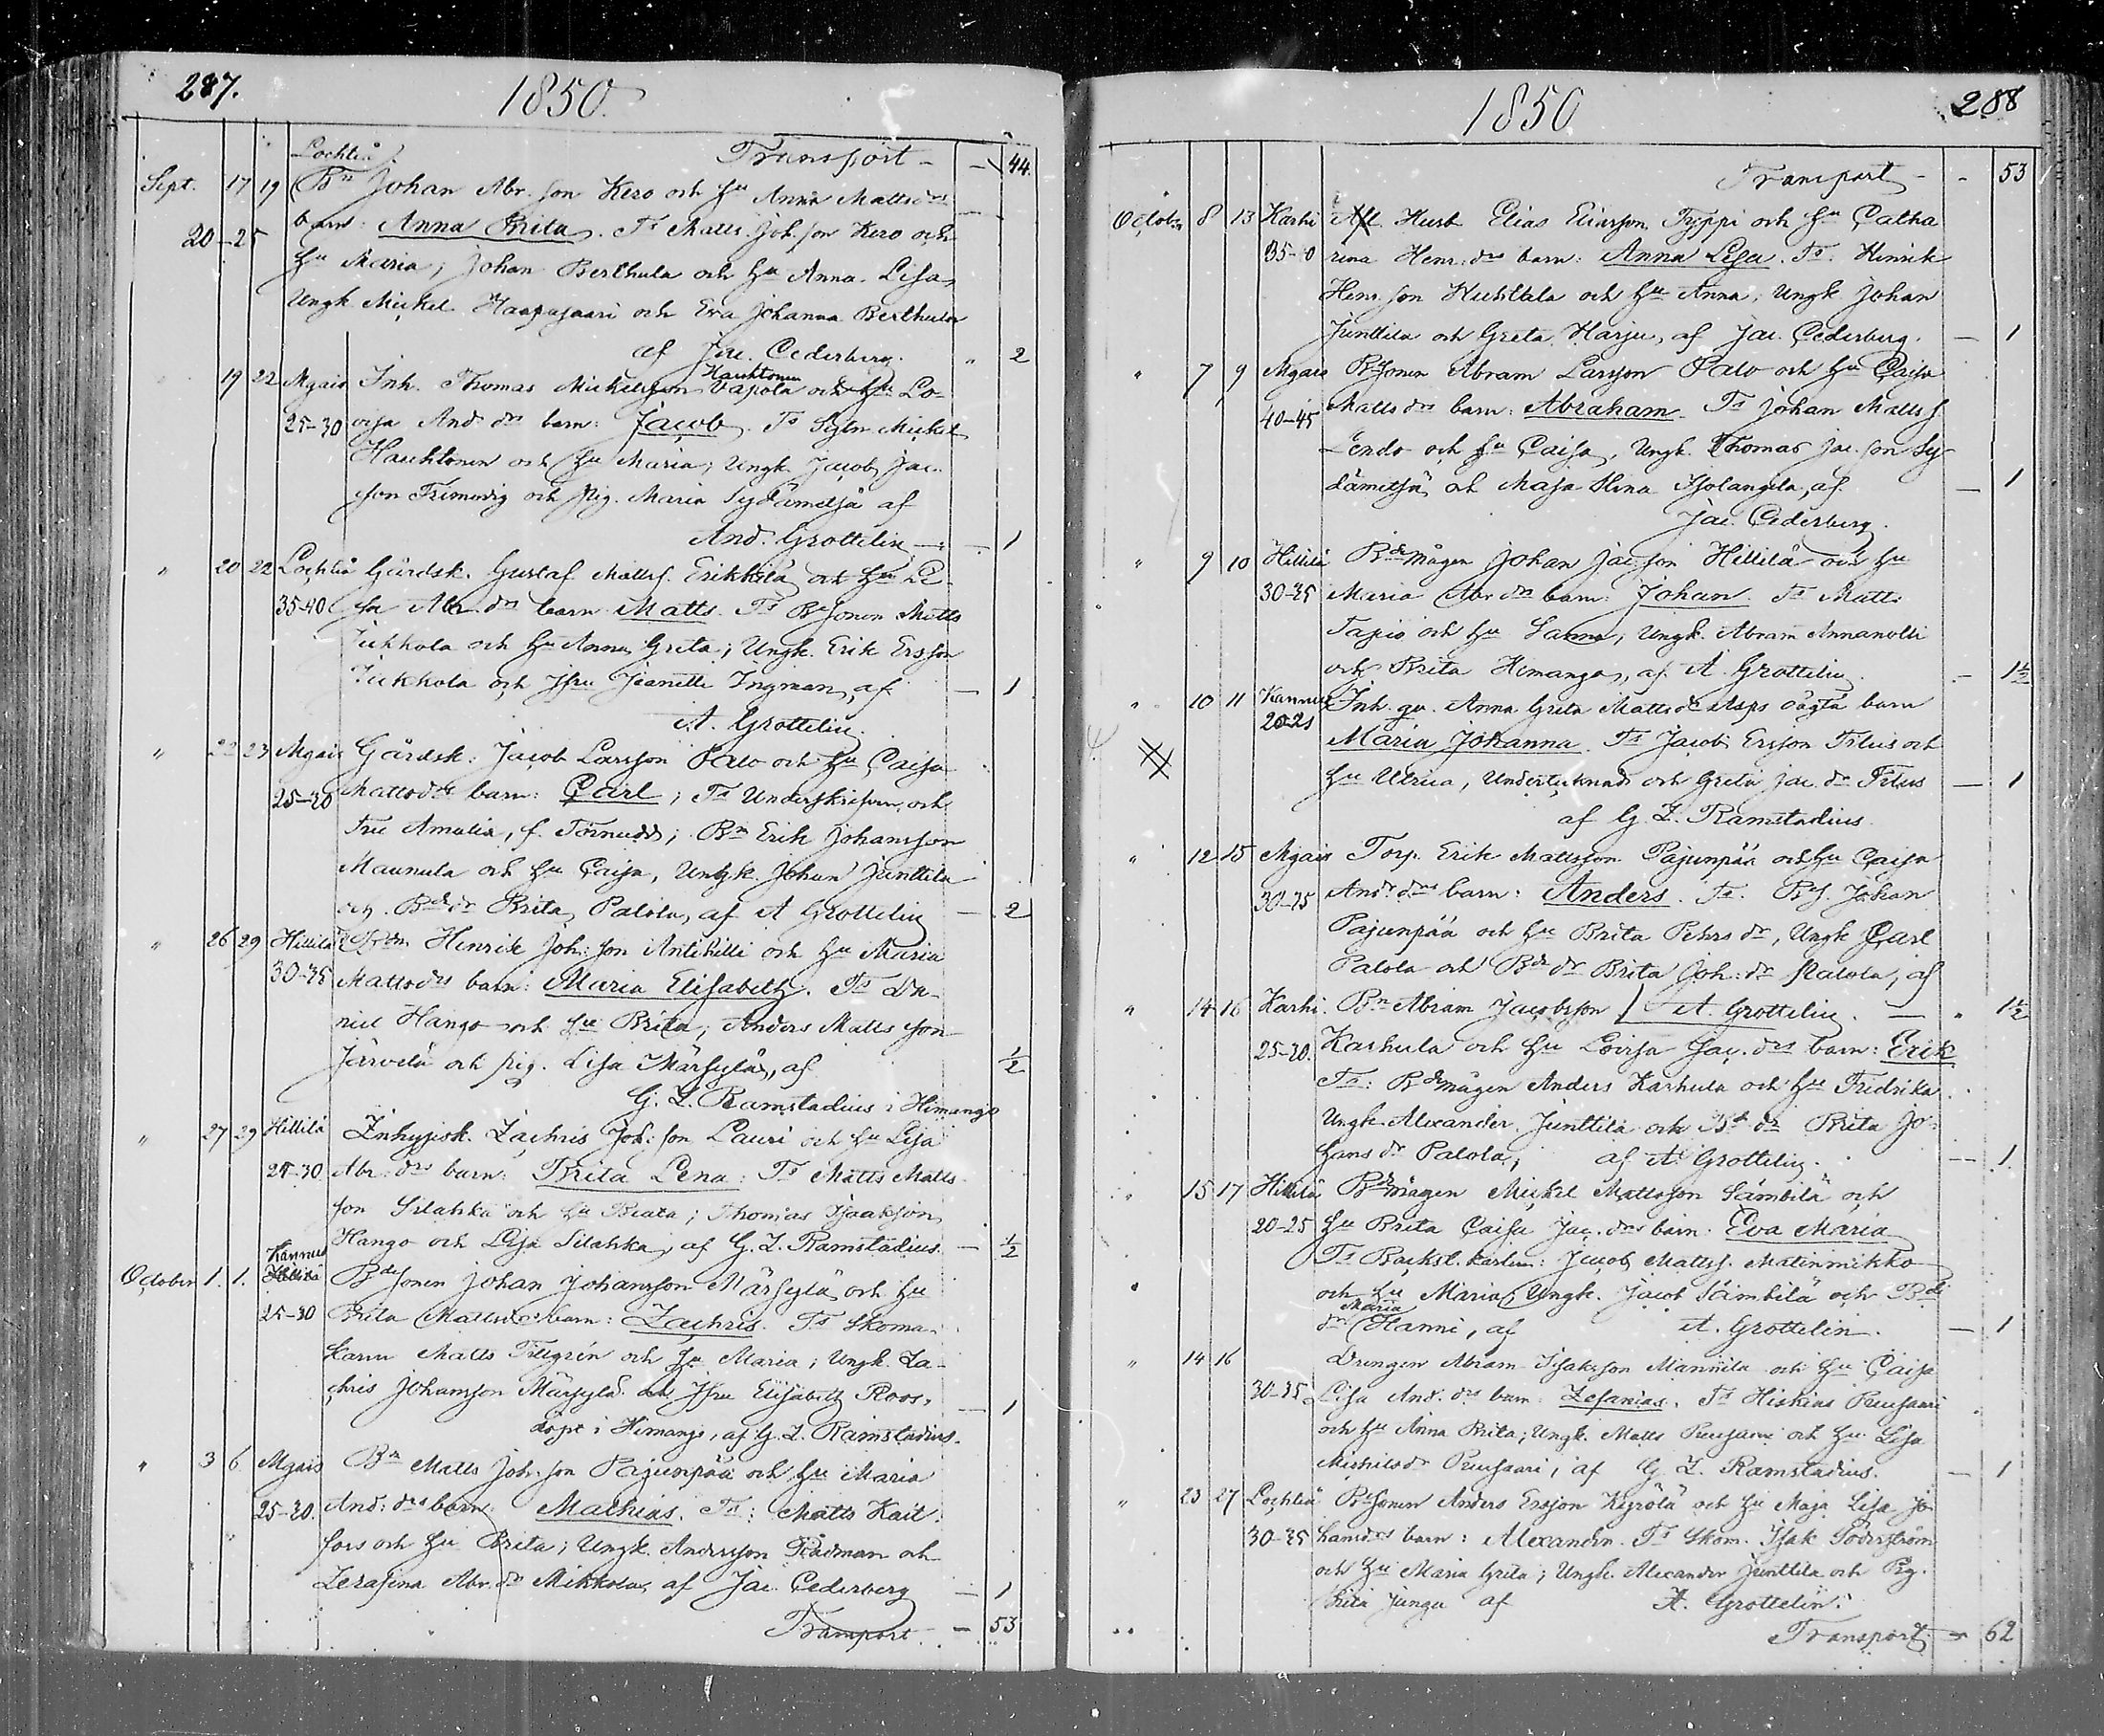 287.
1850.
Lochteå Transport - 44.
Sept. 17 19 Bn Johan Abr. son Kero och hu Anna Mattsdrs
20-25 barn: Anna Brita. Ts Matts Joh. son Kero och
hu Maria; Johan Berthula och hu Anna Lisa,
Ungk Mickel Haapasaari och Eva Johanna Berthula
af Jac. Cederberg. " 2
Hauhtonen
19 22 Mgais Inh. Thomas Mickelsson Vapola och hu Lo-
25-30 visa And. drs barn: Jacob. Ts Sytn. Mickel
Hauhtonen och hu Maria; Ungk. Jacob Jac.
son Trimodig och pig. Maria Sydämetsä af
And. Grottelin - 1
" 20 22 Lochteå Gårdsk. Gustaf Mattss. Erikkilä och hu Li-
35-40 sa Abr. drs barn Matts. Ts Bdsonen Matts
Jukkola och hu Anna Greta; Ungk. Erik Ersson
Jukkola och Jfru Jeanette Ingman, af - 1
A. Grottelin.
" 22 23 Mgais Gårdsk. Jacob Larsson Palo och hu Caisa
25-30 Mattsdrs barn: Carl; Ts Underskrifvn och
Fru Amalia, f. Törnudd; Bn Erik Johansson
Maunula och hu Caisa, Ungk. Johan Junttila
och Bde dr Brita Palola, af A Grottelin - 2
" 26 29 Hillilä Bdn. Henrik Joh: son Antihilli och hu Maria
30-35 Mattsdrs barn: Maria Elisabeth. Ts Da-
niel Hango och hu Brita; Anders Matts son
Järvelä och pig. Lisa Märsylä, af ½
G. L. Ramstadius i Himango
" 27 29 Hillilä Inhysisk. Zachris Joh: son Lauri och hu Lisa
24-30 Abr: drs barn: Brita Lena: Ts Matts Matts-
son Silahka och hu Beata; Thomas Isaaksson
Hango och Lisa Silahka, af G. L. Ramstadius. - ½
Kannus
October 1. 1. Hillilä Bdesonen Johan Johansson Märsylä och hu
25-30 Brita Mattsdrs barn: Zachris. Ts Skoma-
karen Matts Tillgrén och hu Maria; Ungk. Za-
chris Johansson Märsylä och Jfru Elisabeth Roos, - 1
i Himango, af G. L. Ramstadius.
" 3 6 Mgais Bn Matts Joh. son Pajunpää och hu Maria
25-30. And: drs barn: Mathias. Ts: Matts Kait
fors och hu Brita; Ungk. Andersson Rådman och
Serafina Abr. dr Mikkola, af Jac. Cederberg - 1
Transport. - 53
288
1850
Transport - - 53
October 8 13 Karhi Afl. Husb Elias Eliasson Typpi och hu Catha
35-0 rina Henr: drs barn: Anna Lisa. Ts. Hinrik
Henr. son Huhtala och hu Anna; Ungk. Johan
Junttila och Greta Harju, af Jac. Cederberg. - 1
" 7 9 Mgais Bdsonen Abram Larsson Palo och hu Caisa
40-45 Matts drs barn: Abraham. Ts Johan Matts s
Lendo och hu Caisa, Ungk. Thomas Jac. son Sy
dämetsä och Maja Stina Isolangila, af - 1
Jac. Cederberg.
" 9 10 Hillilä Bdemågen Johan Jac. son Hillilä och hu
30-35 Maria Abr drs barn: Johan. Ts Matts
Tapio och hu Sanna; Ungk. Abram Annanolli
och Brita Himango, af A. Grottelin. - 1½
" 10 11 Kannus Inh. qv. Anna Greta Mattsdr Asps oägta barn
20-21 Maria Johanna. Ts Jacob Ersson Titus och
hu Ulrica, Undertecknad och Greta Jac. dr Titus - 1
af G. L. Ramstadius.
" 12 15 Mgais Torp. Erik Mattsson Pajunpää och hu Caisa
30-35 And: drs barn: Anders. Ts. Bds. Johan
Pajunpää och hu Brita Pehrs dr, Ungk Carl
Palola och Bde dr Brita Joh: dr Palola, af
" 14 16 Karhi. Bn Abram Jacobsson / A. Grottelin. - " 1½
25-30. Karhula och hu Lovisa Jac. drs barn: Erik
Ts: Bdemågen Anders Karhula och hu Fredrika.
Ungk. Alexander Junttila och Bde dr Brita Jo-
hans dr Palola; af A. Grottelin. - 1.
" 15 17 Hillilä Bdemågen Mickel Mattsson Sämbilä och
20-25 hu Brita Caisa Jac. drs barn: Eva Maria
Ts Backst. karlen: Jacob Mattss. Matinmikko
och hu Maria, Ungk. Jacob Sämbilä och Bde
Maria
dr Hanni, af A. Grottelin. - 1
" 14 16 Drengen Abram Isaksson Mannila och hu Caisa
30-35 Lisa And. drs barn: Zefanias. Ts Hiskias Ruusaari
och hu Anna Brita; Ungk. Matts Ruusaari och hu Lisa
Michelsdr Ruusaari, af G. L. Ramstadius. - 1
" 23 27 Lochteå Bdsonen Anders Ersson Keyrölä och hu Maja Lisa Jo-
30-35 hansdrs barn: Alexander. Ts Skom. Isak Söderström
och hu Maria Greta; Ungk. Alexander Junttila och Pig.
Brita Junga af A. Grottelin.
Transport - 62